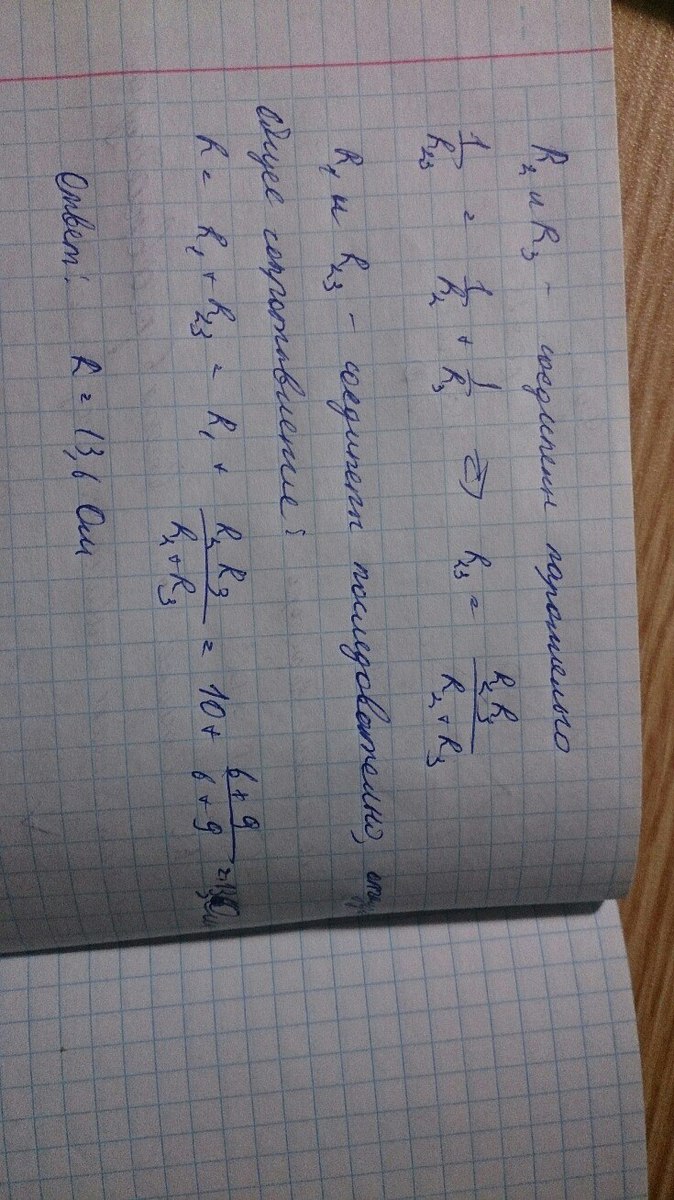 R₂ и R₃ - соединены параллельно
1/R₂₃ = 1/R₂ + 1/R₃ ⇒ R₂₃ = R₂R₃/R₂+R₃
R₁ и R₂₃ - соединены последовательно,
общее сопротивление:
R = R₁ + R₂₃ = R₁ + R₂R₃/R₂+R₃ = 10+ 6+9/6+9 =
Ответ: R = 13,6 Ом